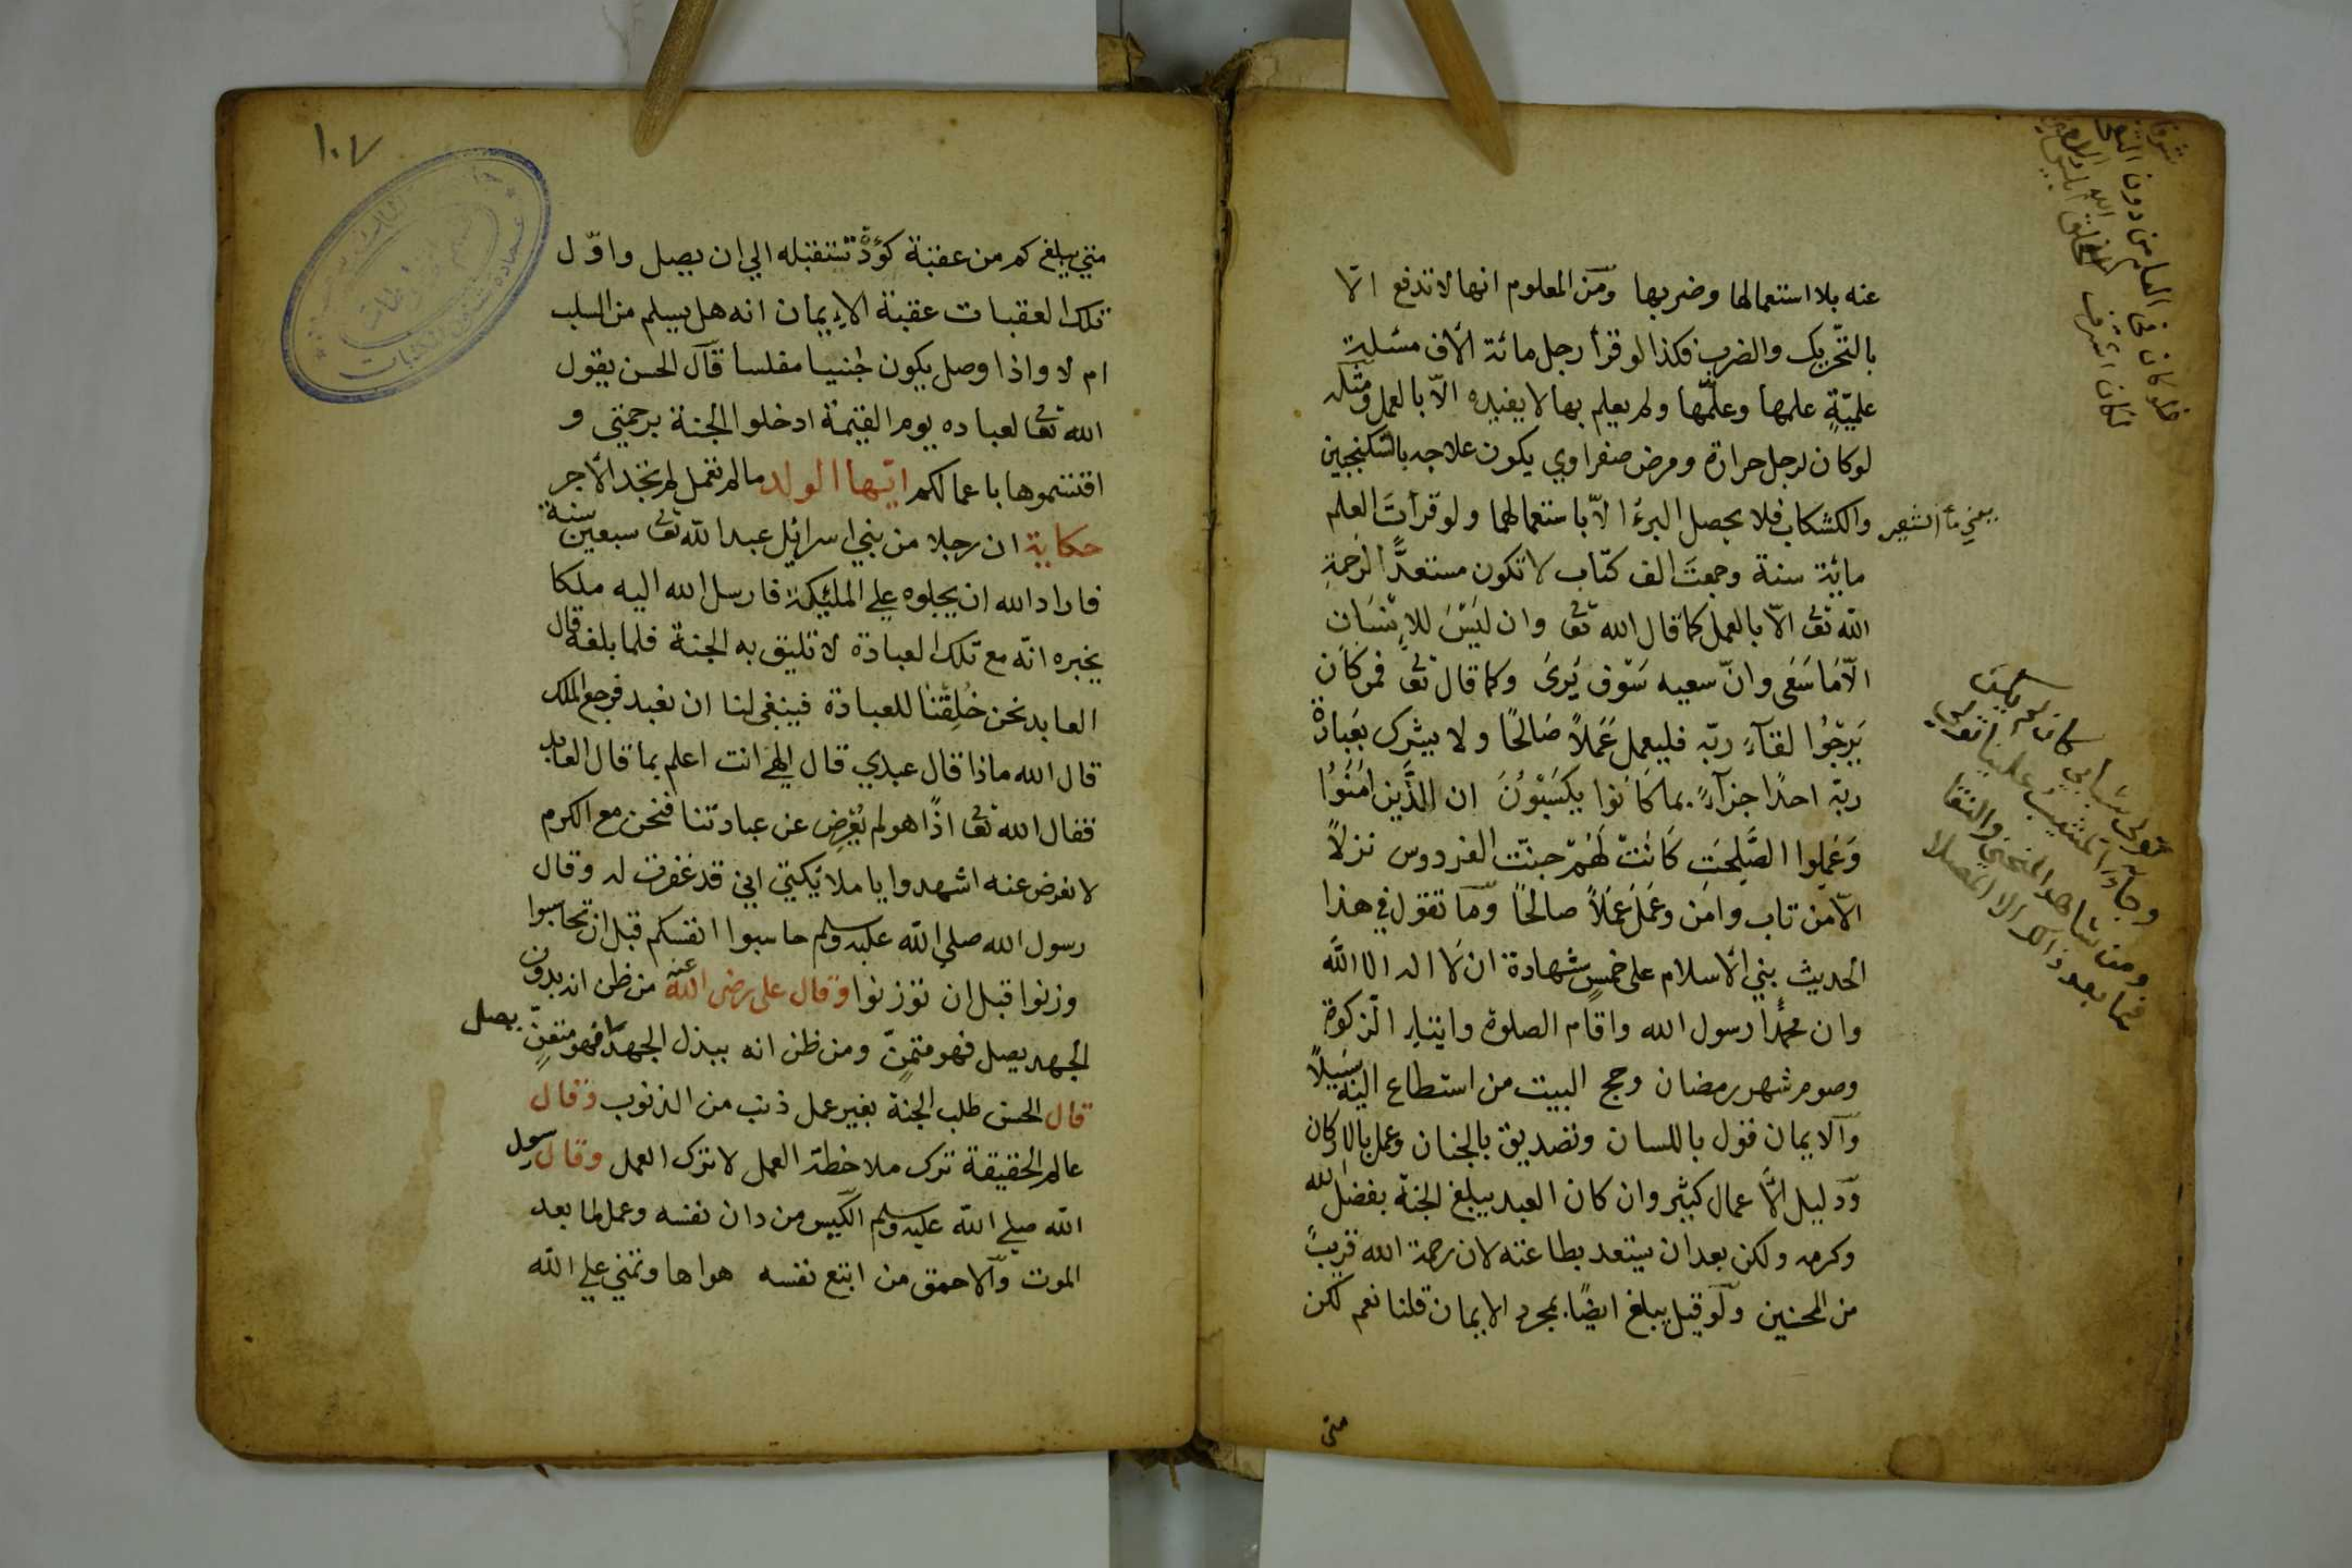 عنه بلا استعمالها وضربها ومن المعلوم انها لا تدفع الا
بالتحريك والضرب فكذا لو قرأ رجل مائة الاف مسئلة
علمية علمها وعلّمها ولم يعلم بها لا يفيده الاّ بالعمل ومثله
لو كان لرجل حرارة ومرض صفراوي يكون علاجه بالسكنجبين
والكشكاب فلا يحصل البرءُ الاّ باستعمالهما ولو قرأت العلم
يعني ماء الشعير
مائة سنة وجمعتَ الف كتاب لا تكون مستعدًّا لرحمة
الله تعـ الاّ بالعمل كما قال الله تعـ وان لَيْسَ للاِنْسَان
الاّ مَا سَعَى وانّ سعيه سَوْف يُرىَ وكما قال تعـ فمن كَان
يَرْجُوا لقآء ربّه فليعمل عَمَلاً صَالحًا ولا يشرك بعَبادة
ربّه احدًا جزآءً بما كَانُوا يكسَبُونَ ان الذَّين امَنُوُا
وَعَملوا الصَّلِحَت كَانَتْ لَهُمْ جنّت الفردوس نزلاً
الاّ من تاب وامَن وعَمَل عَمَلاً صالحًا وما تقول في هذا
الحديث بني الاسلام على خمسٍ شهادة ان لا اله الا الله
وان محمدًا رسول الله واقام الصلوة وايتاء الزكوة
وصوم شهر رمضان وحج البيت من استطاع اليه سبيلاً
والايمان قول باللسان وتصديق بالجنان وعمل بالاركان
ودليل الاعمال كثير وان كان العبد يبلغ الجنة بفضل الله
وكرمه ولكن بعد ان يستعد بطاعته لان رحمة الله قريبٌ
من المحسنين ولو قيل يبلغ ايضًا بمجرد الايمان قلنا نعم لكن
متى
١٠٧
متي يبلغ كم من عقبة كؤدة تستقبله الي ان يصل واوّل
تلك العقبات عقبة الايمان انه هل يسلم من السلب
ام لا واذا وصل يكون جنيا مفلسا قال الحسن يقول
الله تعـا لعباده يوم القيمة ادخلوا الجنة برحمتي و
اقتسموها باعمالكم ايّها الولد ما لم تعمل لم تجد الاجر
حكاية ان رجلا من بني اسرائيل عبد الله تعـ سبعين سنة
فاراد الله ان يجلوه علي المليكة فارسل الله اليه ملكا
يخبره انّه مع تلك العبادة لا تليق به الجنة فلما بلغه قال
العابد نحن خُلِقْنا للعبادة فينبغي لنا ان نعبد فرجع الملك
قال الله ماذا قال عبدي قال الهي انت اعلم بما قال العابد
فقال الله تعـا اذًا هو لم يُعْرِض عن عبادتنا فنحن مع الكرم
لا نعرض عنه اشهدوا يا ملائكتي اني قد غفرت له وقال
رسول الله صلي الله عليه وسلم حاسبوا انفسكم قبل ان تحاسبوا
وزنوا قبل ان توزنوا وقال على رضى الله عنه من ظن انه بدون
الجهد يصل فهو متمنٍّ ومن ظن انه ببذل الجهد يصل فهو متعنٍّ
قال الحسن طلب الجنة بغير عمل ذنب من الذنوب وقال
عالم الحقيقة ترك ملاحظة العمل لا ترك العمل وقال رسول
الله صلي الله عليه وسلم الكيّس من دان نفسه وعمل لما بعد
الموت والاحمق من اتبع نفسه هواها وتمني علي الله